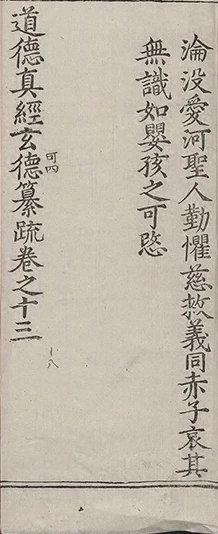 淪没愛河聖人勤懼慈救義同赤子哀其
無識如嬰孩之可愍
道德真經玄德纂疏卷之十三
可四
十八